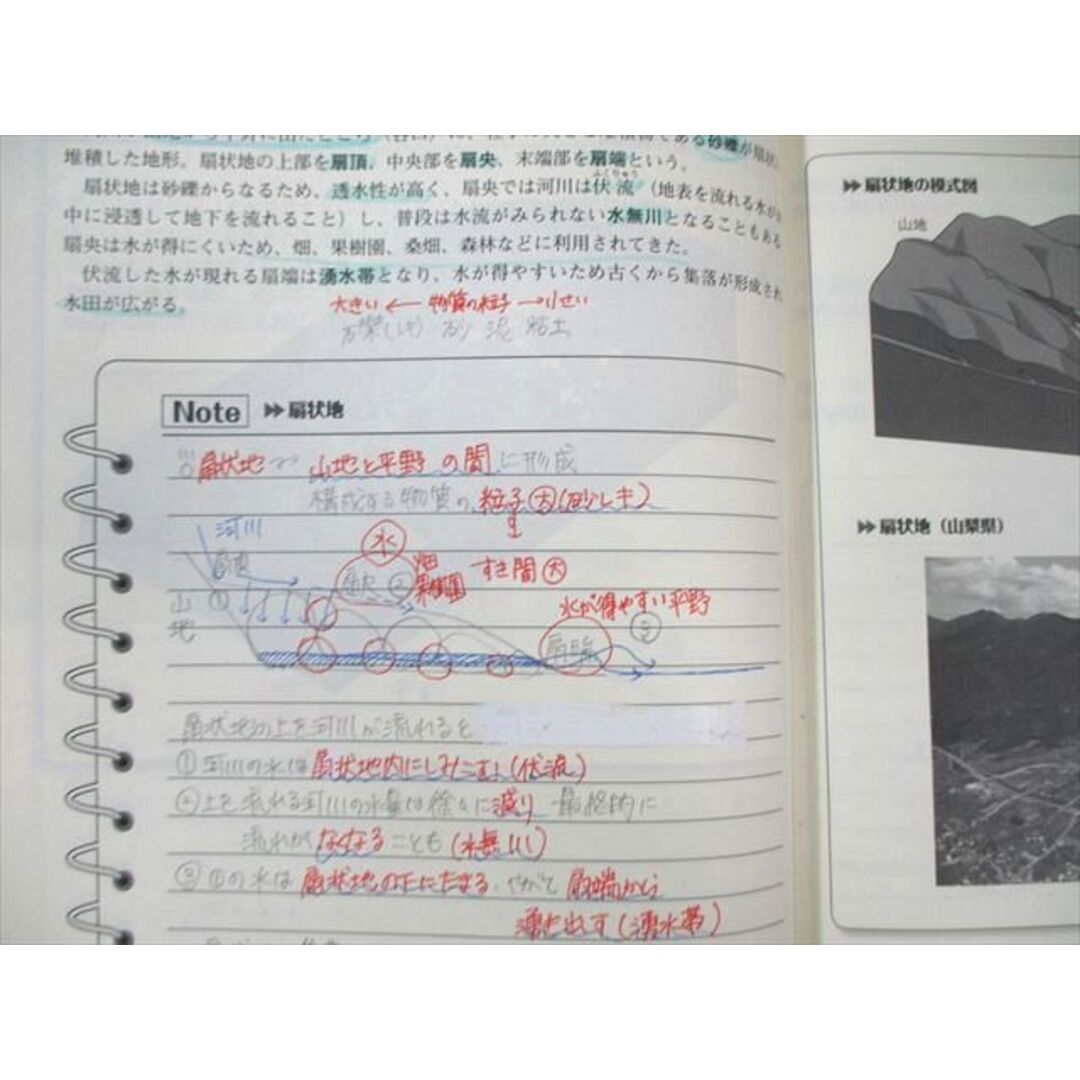 である砂礫が扇状
堆積した地形。扇状地の上部を扇頂、中央部を扇央、末端部を扇端という。
ふくりゅう
扇状地は砂礫からなるため、透水性が高く、扇央では河川は伏流（地表を流れる水が
中に浸透して地下を流れること）し、普段は水流がみられない水無川となることもある
扇央は水が得にくいため、畑、果樹園、桑畑、森林などに利用されてきた。
伏流した水が現れる扇端は湧水帯となり、水が得やすいため古くから集落が形成され
水田が広がる。
大きい ← 物質の粒子 → 小せい
礫(レキ) 砂 泥 粘土
Note 扇状地
扇状地 山地と平野の間に形成
構成する物質の粒子大(砂レキ)
河川
水
扇頂 扇央 ② 畑 果樹園 すき間大
山地 ①
水が得やすい平野
扇端 ③
扇状地の上を河川が流れると
①河川の水は扇状地内にしみこむ(伏流)
②上を流れる河川の水量は徐々に減り 最終的に
流れがなくなることも(水無川)
③①の水は扇状地の下にたまる、やがて扇端から
湧き出す(湧水帯)
扇状地の模式図
山地
扇状地（山梨県）